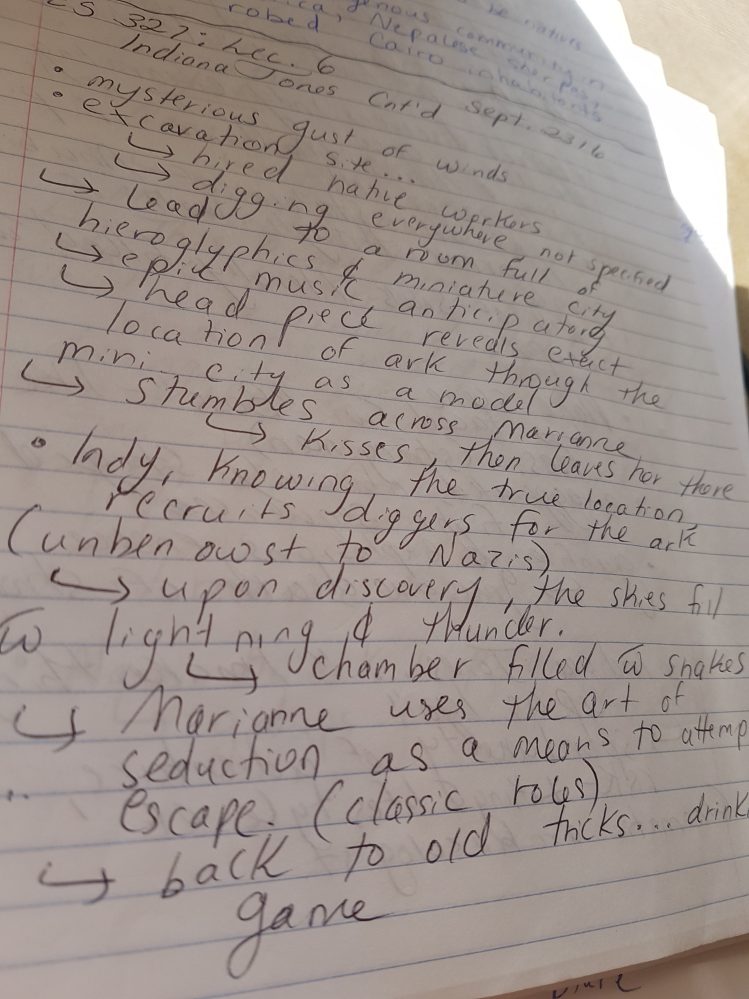 genous community in
robed Nepalese sherpas,
Cairo inhabitants
CS 327: Lec. 6
Indiana Jones Cnt'd Sept. 23/16
• mysterious gust of winds
• excavation site...
↳ hired native workers
↳ digging everywhere not specified
↳ Lead to a room full of
hieroglyphics & miniature city
↳ epic music anticipatory
↳ head piece reveals exact
location of ark through the
mini city as a model
↳ stumbles across Marianne
↳ Kisses, then leaves her there
• Indy, knowing the true location,
recruits diggers for the ark
(unbenowst to Nazis)
↳ upon discovery, the skies fill
w̅ lightning & thunder.
↳ chamber filled w̅ snakes
↳ Marianne uses the art of
seduction as a means to attemp
escape. (classic roles)
↳ back to old tricks... drink
game